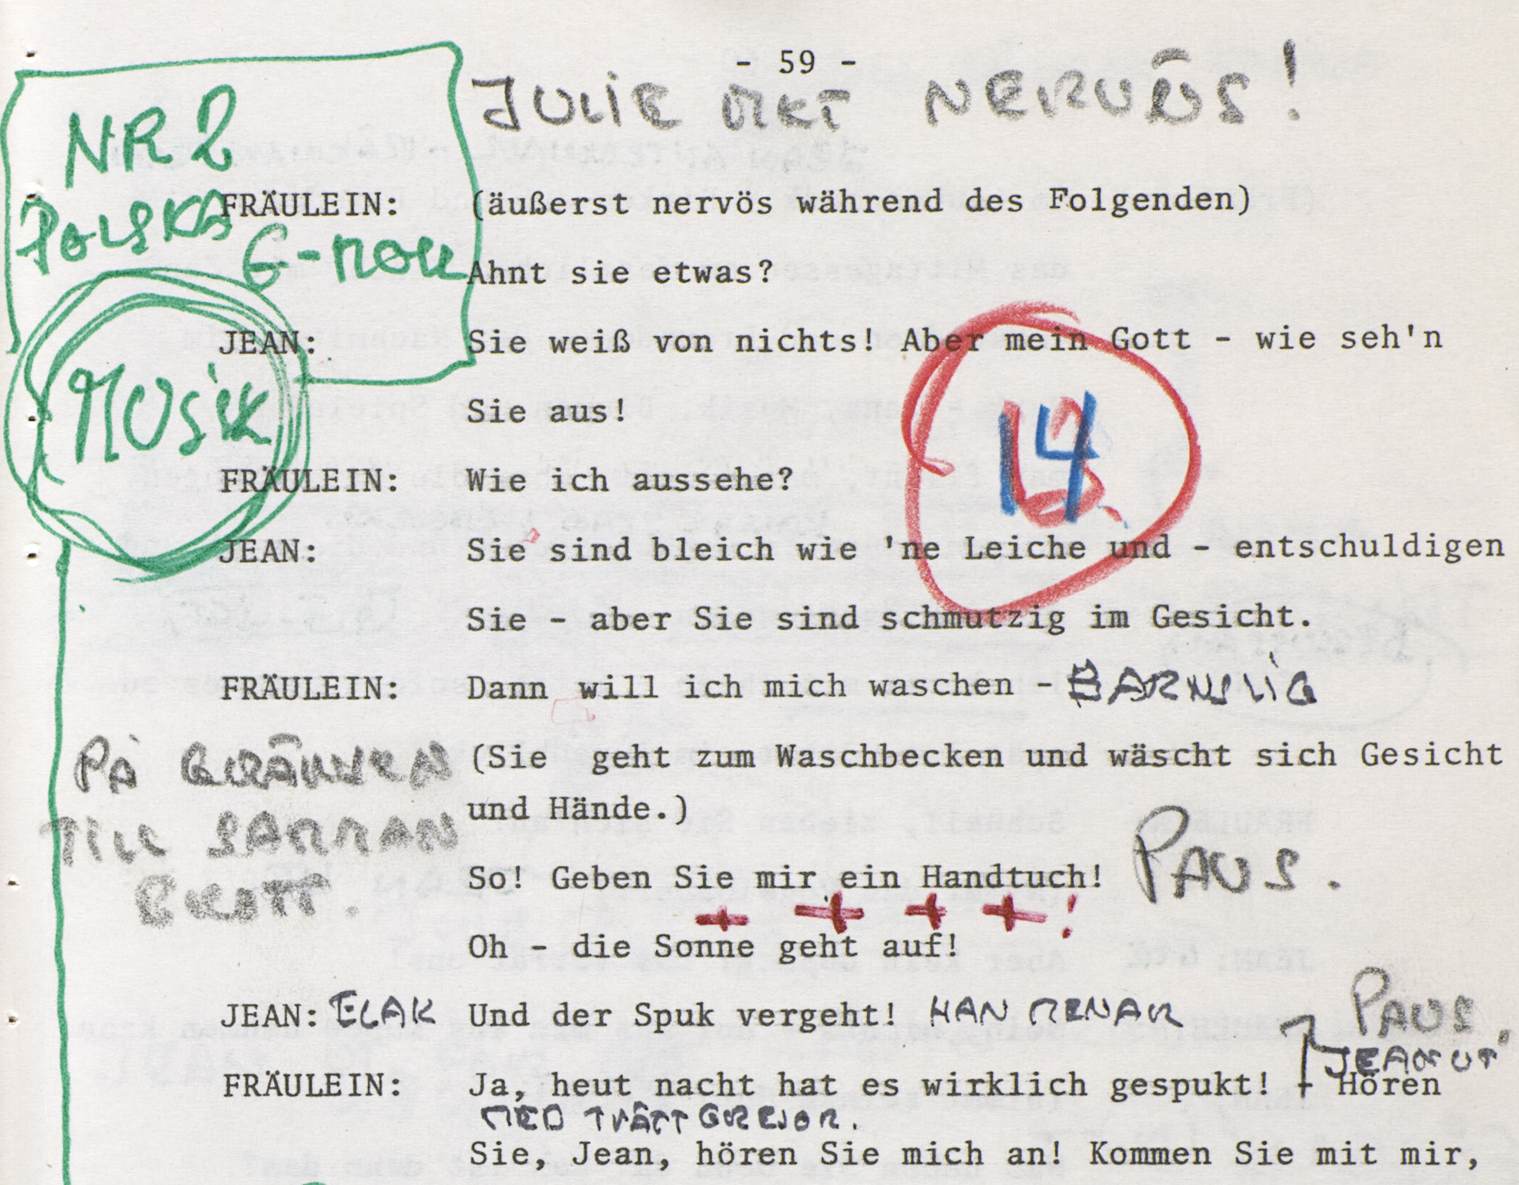 - 59 -
JULIE ÖKT NERVÖS!
NR 2
POLSKA
G-MOLL
FRÄULEIN: (äußerst nervös während des Folgenden)
Ahnt sie etwas?
JEAN: Sie weiß von nichts! Aber mein Gott - wie seh'n
Sie aus!
MUSIK
14
FRÄULEIN: Wie ich aussehe?
JEAN: Sie sind bleich wie 'ne Leiche und - entschuldigen
Sie - aber Sie sind schmutzig im Gesicht.
FRÄULEIN: Dann will ich mich waschen - BARNSLIG
PÅ GRÄNSEN
TILL SAMMAN
BROTT.
(Sie geht zum Waschbecken und wäscht sich Gesicht
und Hände.)
So! Geben Sie mir ein Handtuch! PAUS.
Oh - die Sonne geht auf!
JEAN: ELAK Und der Spuk vergeht! HAN MENAR
PAUS.
JEAN UT
FRÄULEIN: Ja, heut nacht hat es wirklich gespukt! - Hören
MED TVÄTTGREJOR.
Sie, Jean, hören Sie mich an! Kommen Sie mit mir,